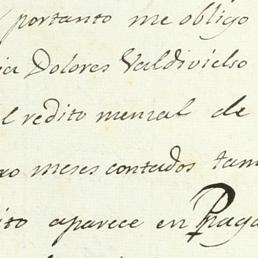 portanto me obligo
ia Dolores Valdivielso
l redito menzal de
ao meses contados tam
ito aparece en Paga